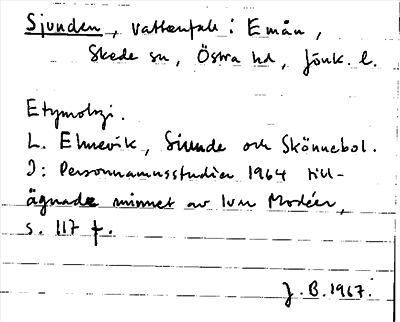 Sjunden, vattenfall i Emån,
Skede sn, Östra hd, Jönk. l.
Etymologi.
L. Elmevik, Siunde och Skönnebol.
I: Personnamnsstudier 1964 till-
ägnade minnet av Ivar Modéer,
s. 117 f.
J.B. 1967.